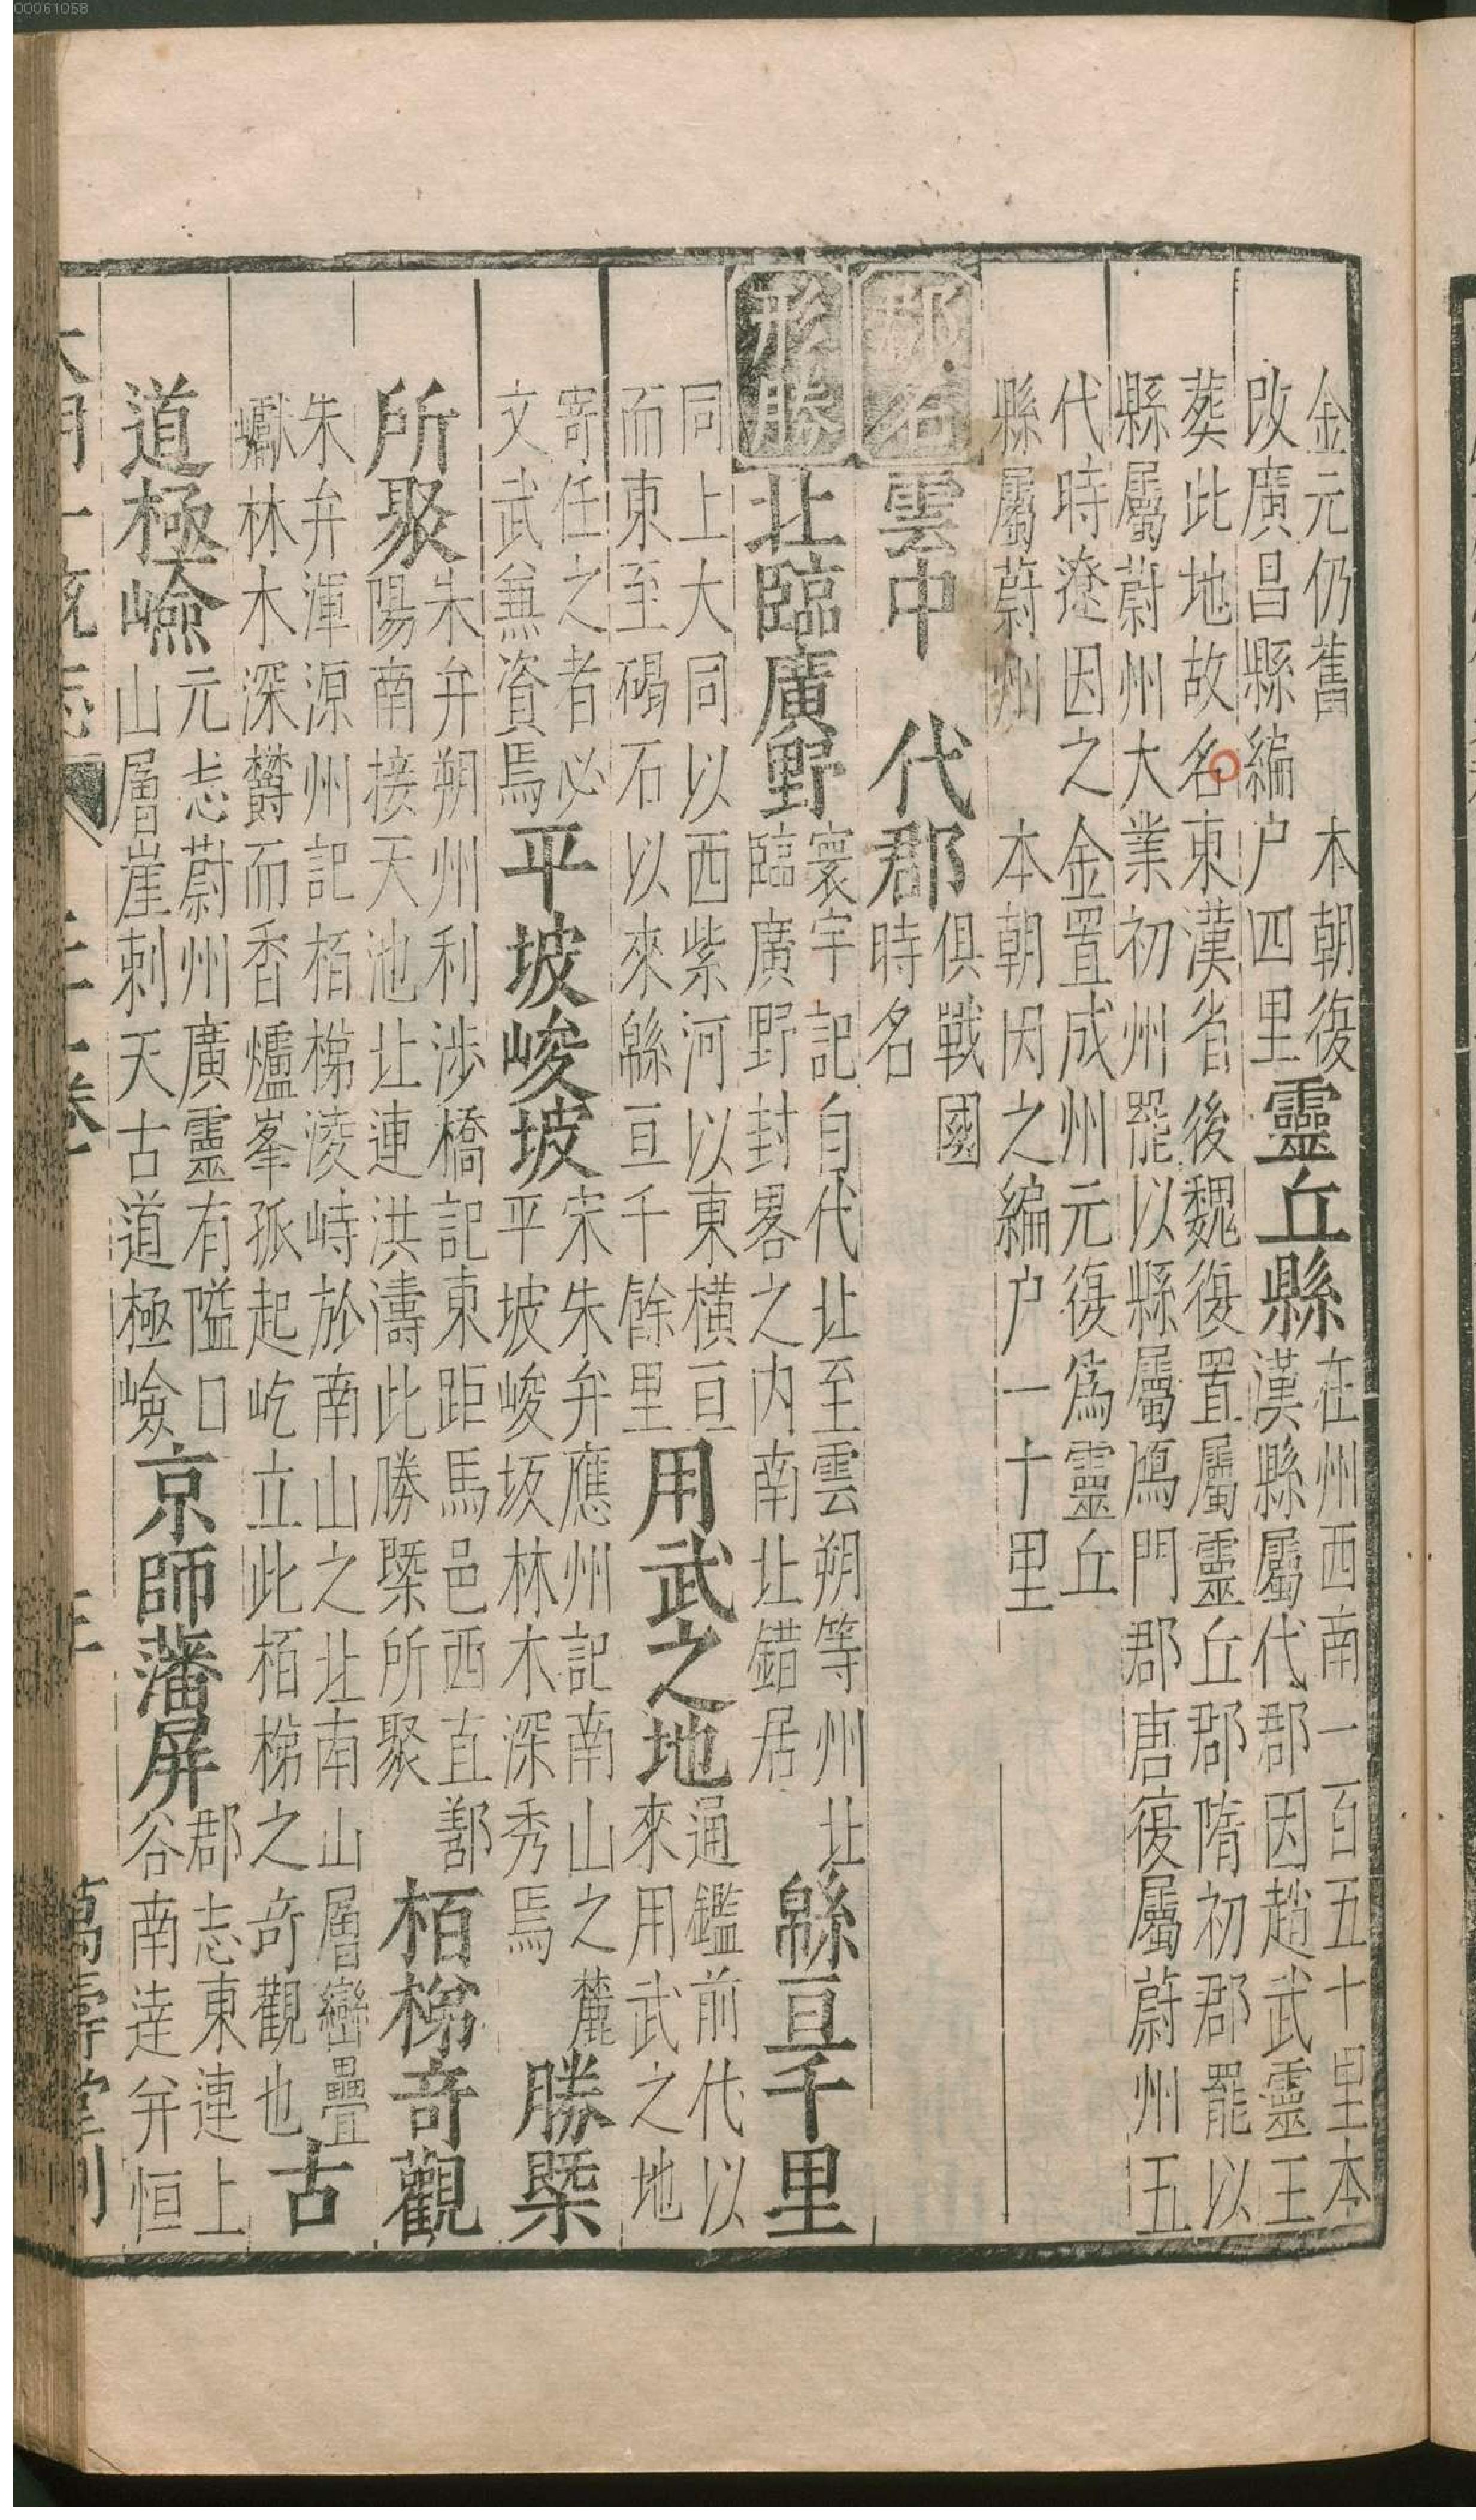 金元仍舊 本朝復
改廣昌縣編户四里
靈丘縣
在州西南一百五十里本
漢縣屬代郡因趙武靈王
葬此地故名東漢省後魏復置屬靈丘郡隋初郡罷以
縣屬蔚州大業初州罷以縣屬鴈門郡唐復屬蔚州五
代時遼因之金置成州元復為靈丘
縣屬蔚州 本朝因之編户一十里
郡名 雲中 代郡
俱戰國
時名
形勝 北臨廣野
寰宇記自代北至雲朔等州北
臨廣野封畧之内南北錯居
緜亘千里
同上大同以西紫河以東橫亘
而東至碣石以來緜亘千餘里
用武之地
通鑑前代以
來用武之地
寄任之者必
文武兼資焉
平坡峻坡
宋朱弁應州記南山之麓
平坡峻坂林木深秀焉
勝槩
所聚
朱弁朔州利涉橋記東距馬邑西直鄯
陽南接天池北連洪濤此勝槩所聚
栢梯奇觀
朱弁渾源州記栢梯凌峙於南山之北南山層巒疊
巘林木深欝而香爐峯孤起屹立此栢梯之奇觀也
古
道極嶮
元志蔚州廣靈有隘口
山層崖刺天古道極嶮
京師藩屏
郡志東連上
谷南達并恒
大明一統志 二十一卷 萬壽堂刊
00061058